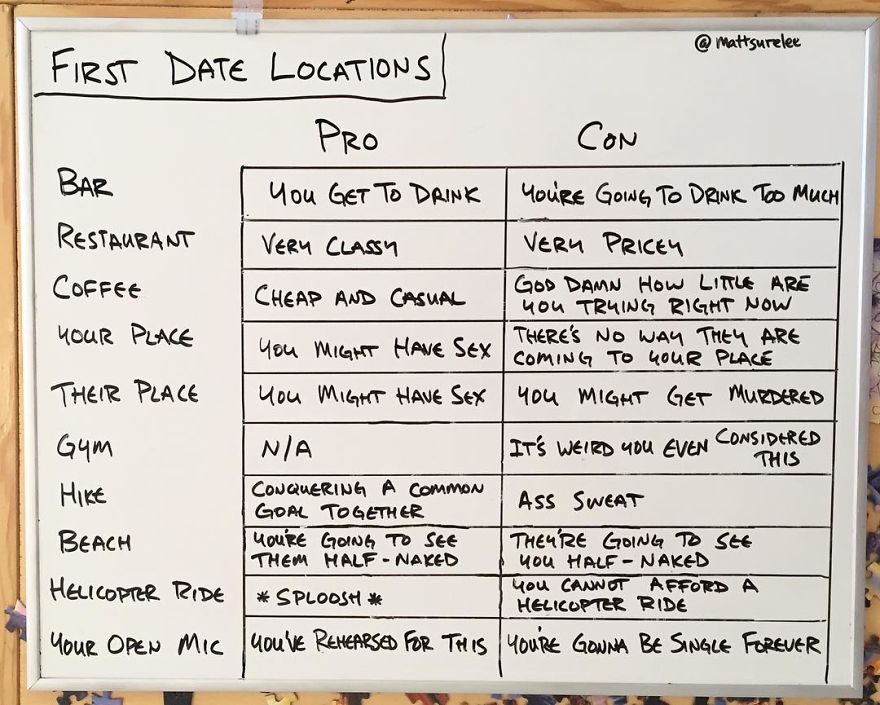 @mattsurelee
FIRST DATE LOCATIONS
PRO CON
BAR YOU GET TO DRINK YOU'RE GOING TO DRINK TOO MUCH
RESTAURANT VERY CLASSY VERY PRICEY
COFFEE CHEAP AND CASUAL GOD DAMN HOW LITTLE ARE
YOU TRYING RIGHT NOW
YOUR PLACE YOU MIGHT HAVE SEX THERE'S NO WAY THEY ARE
COMING TO YOUR PLACE
THEIR PLACE YOU MIGHT HAVE SEX YOU MIGHT GET MURDERED
GYM N/A IT'S WEIRD YOU EVEN CONSIDERED
THIS
HIKE CONQUERING A COMMON
GOAL TOGETHER ASS SWEAT
BEACH YOU'RE GOING TO SEE
THEM HALF-NAKED THEY'RE GOING TO SEE
YOU HALF-NAKED
HELICOPTER RIDE *SPLOOSH* YOU CANNOT AFFORD A
HELICOPTER RIDE
YOUR OPEN MIC YOU'VE REHEARSED FOR THIS YOU'RE GONNA BE SINGLE FOREVER